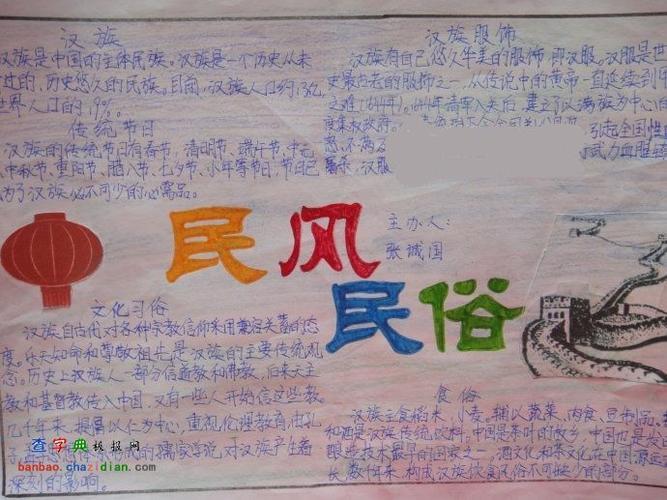 汉族
汉族是中国的主体民族。汉族是一个历史从未
过的,历史悠久的民族。目前,汉族人口约13亿
世界人口的19%。
传统节日
汉族的传统节日有春节,清明节、端午节、中元
中秋节、重阳节、腊八节、七夕节、小年等节日,节日已
为了汉族必不可少的必需品。
汉族服饰
汉族有自己悠久华美的服饰,即汉服。汉服是世
史最古老的服饰之一,从传说中的黄帝一直延续到
之难(1644年)。1644年清军入关后,建立了以满族为中心的
度集权政府。
引起全国性
武力血腥
屠杀,汉服
民风
民俗
主办人:
张诚国
文化习俗
汉族自古代对各种宗教信仰采用兼容并蓄的态
度。乐天知命和尊敬祖先是汉族的主要传统观
念。历史上汉族人一部分信道教和佛教,后来天主
教和基督教传入中国,又有一些人开始信这些教
几千年来,提冒以仁为中心,重视伦理教育,由孔
的儒家学说,对汉族产生着
深刻的影响。
食俗
汉族主食稻米、小麦,辅以蔬菜、肉食、豆制品。
和酒是汉族传统饮料。中国是茶叶的故乡,中国也是发
酿造技术最早的国家之一,酒文化和茶文化在中国源远
长,数千年来,构成汉族饮食风俗不可缺少的部分。
查字典板报网
banbao.chazidian.com